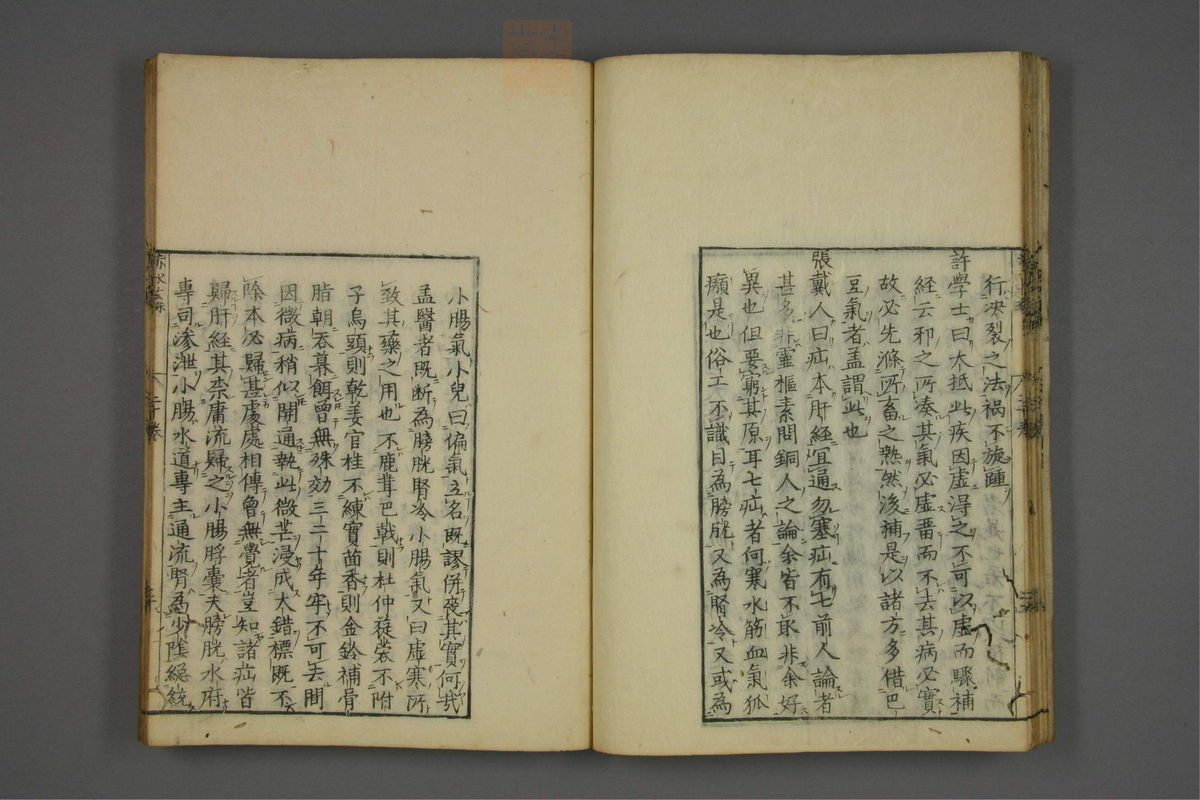 行决裂之法禍不旋踵
許學士曰大抵此疾因虛得之不可以虛而驟補
經云邪之所湊其氣必虛畱而不去其病必實
故必先滌所畜之熱然後補是以諸方多借巴
豆氣者盖謂此也
張戴人曰疝本肝經宜通勿塞疝有七前人論者
甚多非靈樞素問銅人之論余皆不取非余好
異也但要窮其原耳七疝者何寒水筋血氣狐
㿗是也俗工不識目為膀胱又為腎冷又或為
小腸氣小兒曰偏氣立名既謬併喪其實何哉
盖醫者既断為膀胱腎冷小腸氣又曰虛寒所
致其藥之用也不鹿茸巴戟則杜仲蓯蓉不附
子烏頭則乾姜官桂不練實茴香則金鈴補骨
脂朝吞暮餌曾無殊効三二十年牢不可去間
因微病稍似開通執此微芒浸成大錯標既不
除本必歸甚處處相傳曾無覺者豈知諸疝皆
歸肝經其柰庸流歸之小腸脬囊夫膀胱水府
專司滲泄小腸水道專主通流腎為少陰總統
赤水玄珠
二十卷